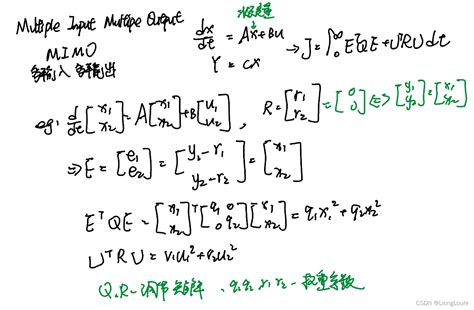 Multiple Input Multiple Output
MIMO
多输入 多输出
状态变量
dx/dt = Ax+Bu → J=∫₀^∞ EᵀQE+UᵀRU dt
Y = cx
eg: d/dt [x₁ x₂] = A[x₁ x₂]+B[u₁ u₂], R=[r₁ r₂]=[0 0] ⇔ [y₁ y₂]=[x₁ x₂]
⇒ E = [e₁ e₂] = [y₂-r₁ y₂-r₂] = [x₁ x₂]
EᵀQE = [x₁ x₂]ᵀ[q₁ 0 0 q₂][x₁ x₂] = q₁x₁²+q₂x₂²
UᵀRU = r₁u₁²+r₂u₂²
Q.R-调节矩阵 . q₁ q₂ r₁ r₂ - 权重系数
CSDN @LiongLoure